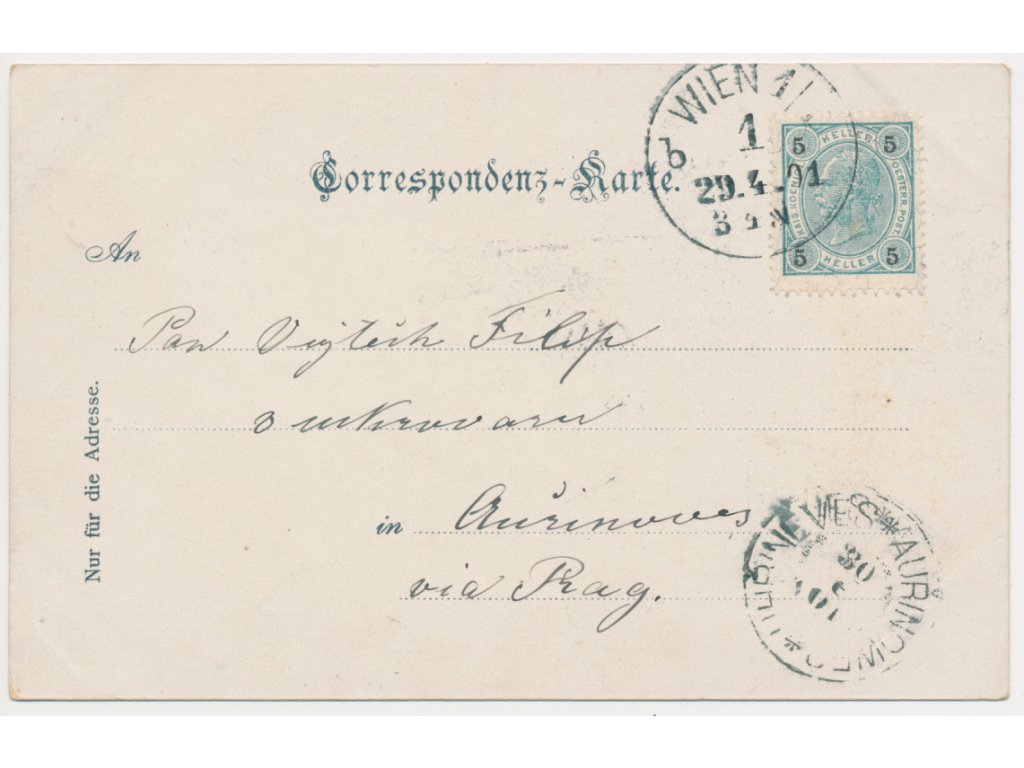 Correspondenz-Karte.
WIEN 1/1
1
b
29.4.01
5 HELLER 5
KAIS. KOENIGL. OESTERR. POST.
5 HELLER 5
An
Pan Vojtěch Filip
v cukrovaru
in Auřinoves
via Prag.
Nur für die Adresse.
UHŘINĚVES * AUŘINOWES *
30